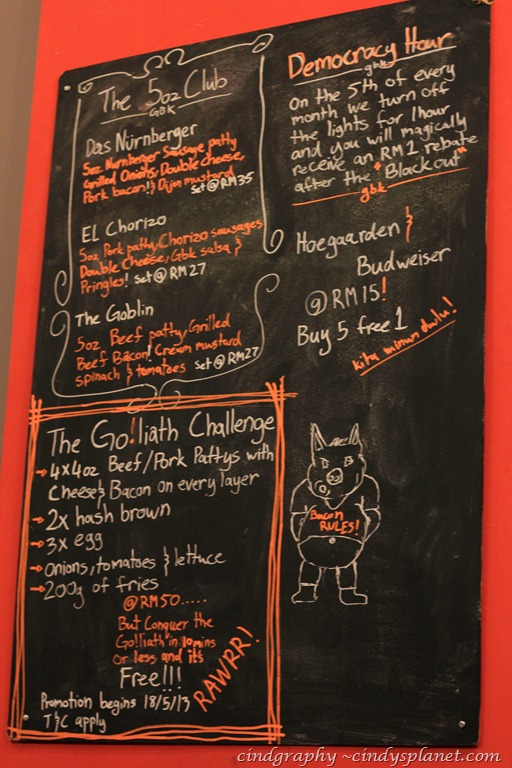 The 5oz Club
GBK
Das Nürnberger
5oz Nurnberger Sausage patty
Grilled Onions, Double cheese,
Pork bacon! & Dijon mustard
Set @ RM35
EL Chorizo
5oz Pork patty, Chorizo sausages
Double Cheese, Gbk salsa &
Pringles! Set @ RM27
The Goblin
5oz Beef patty, Grilled
Beef Bacon! Cream mustard
spinach & tomatoes Set @ RM27
The Go!liath Challenge
→ 4x4oz Beef/Pork Pattys with
Cheese & Bacon on every layer
→ 2x hash brown
→ 3x egg
→ Onions, tomatoes & lettuce
→ 200g of fries
@ RM50.....
But Conquer the
Go!liath in 10mins
or less and its
Free!!!
RAWRR!
Promotion begins 18/5/13
T&C apply
Democracy Hour
gbk
On the 5th of every
month we turn off
the lights for 1hour
and you will magically
receive an RM1 rebate
after the "Black out"
gbk
Hoegaarden &
Budweiser
@ RM15!
Buy 5 free 1
kita minum dulu!
Bacon
RULES!
cindgraphy ~cindysplanet.com